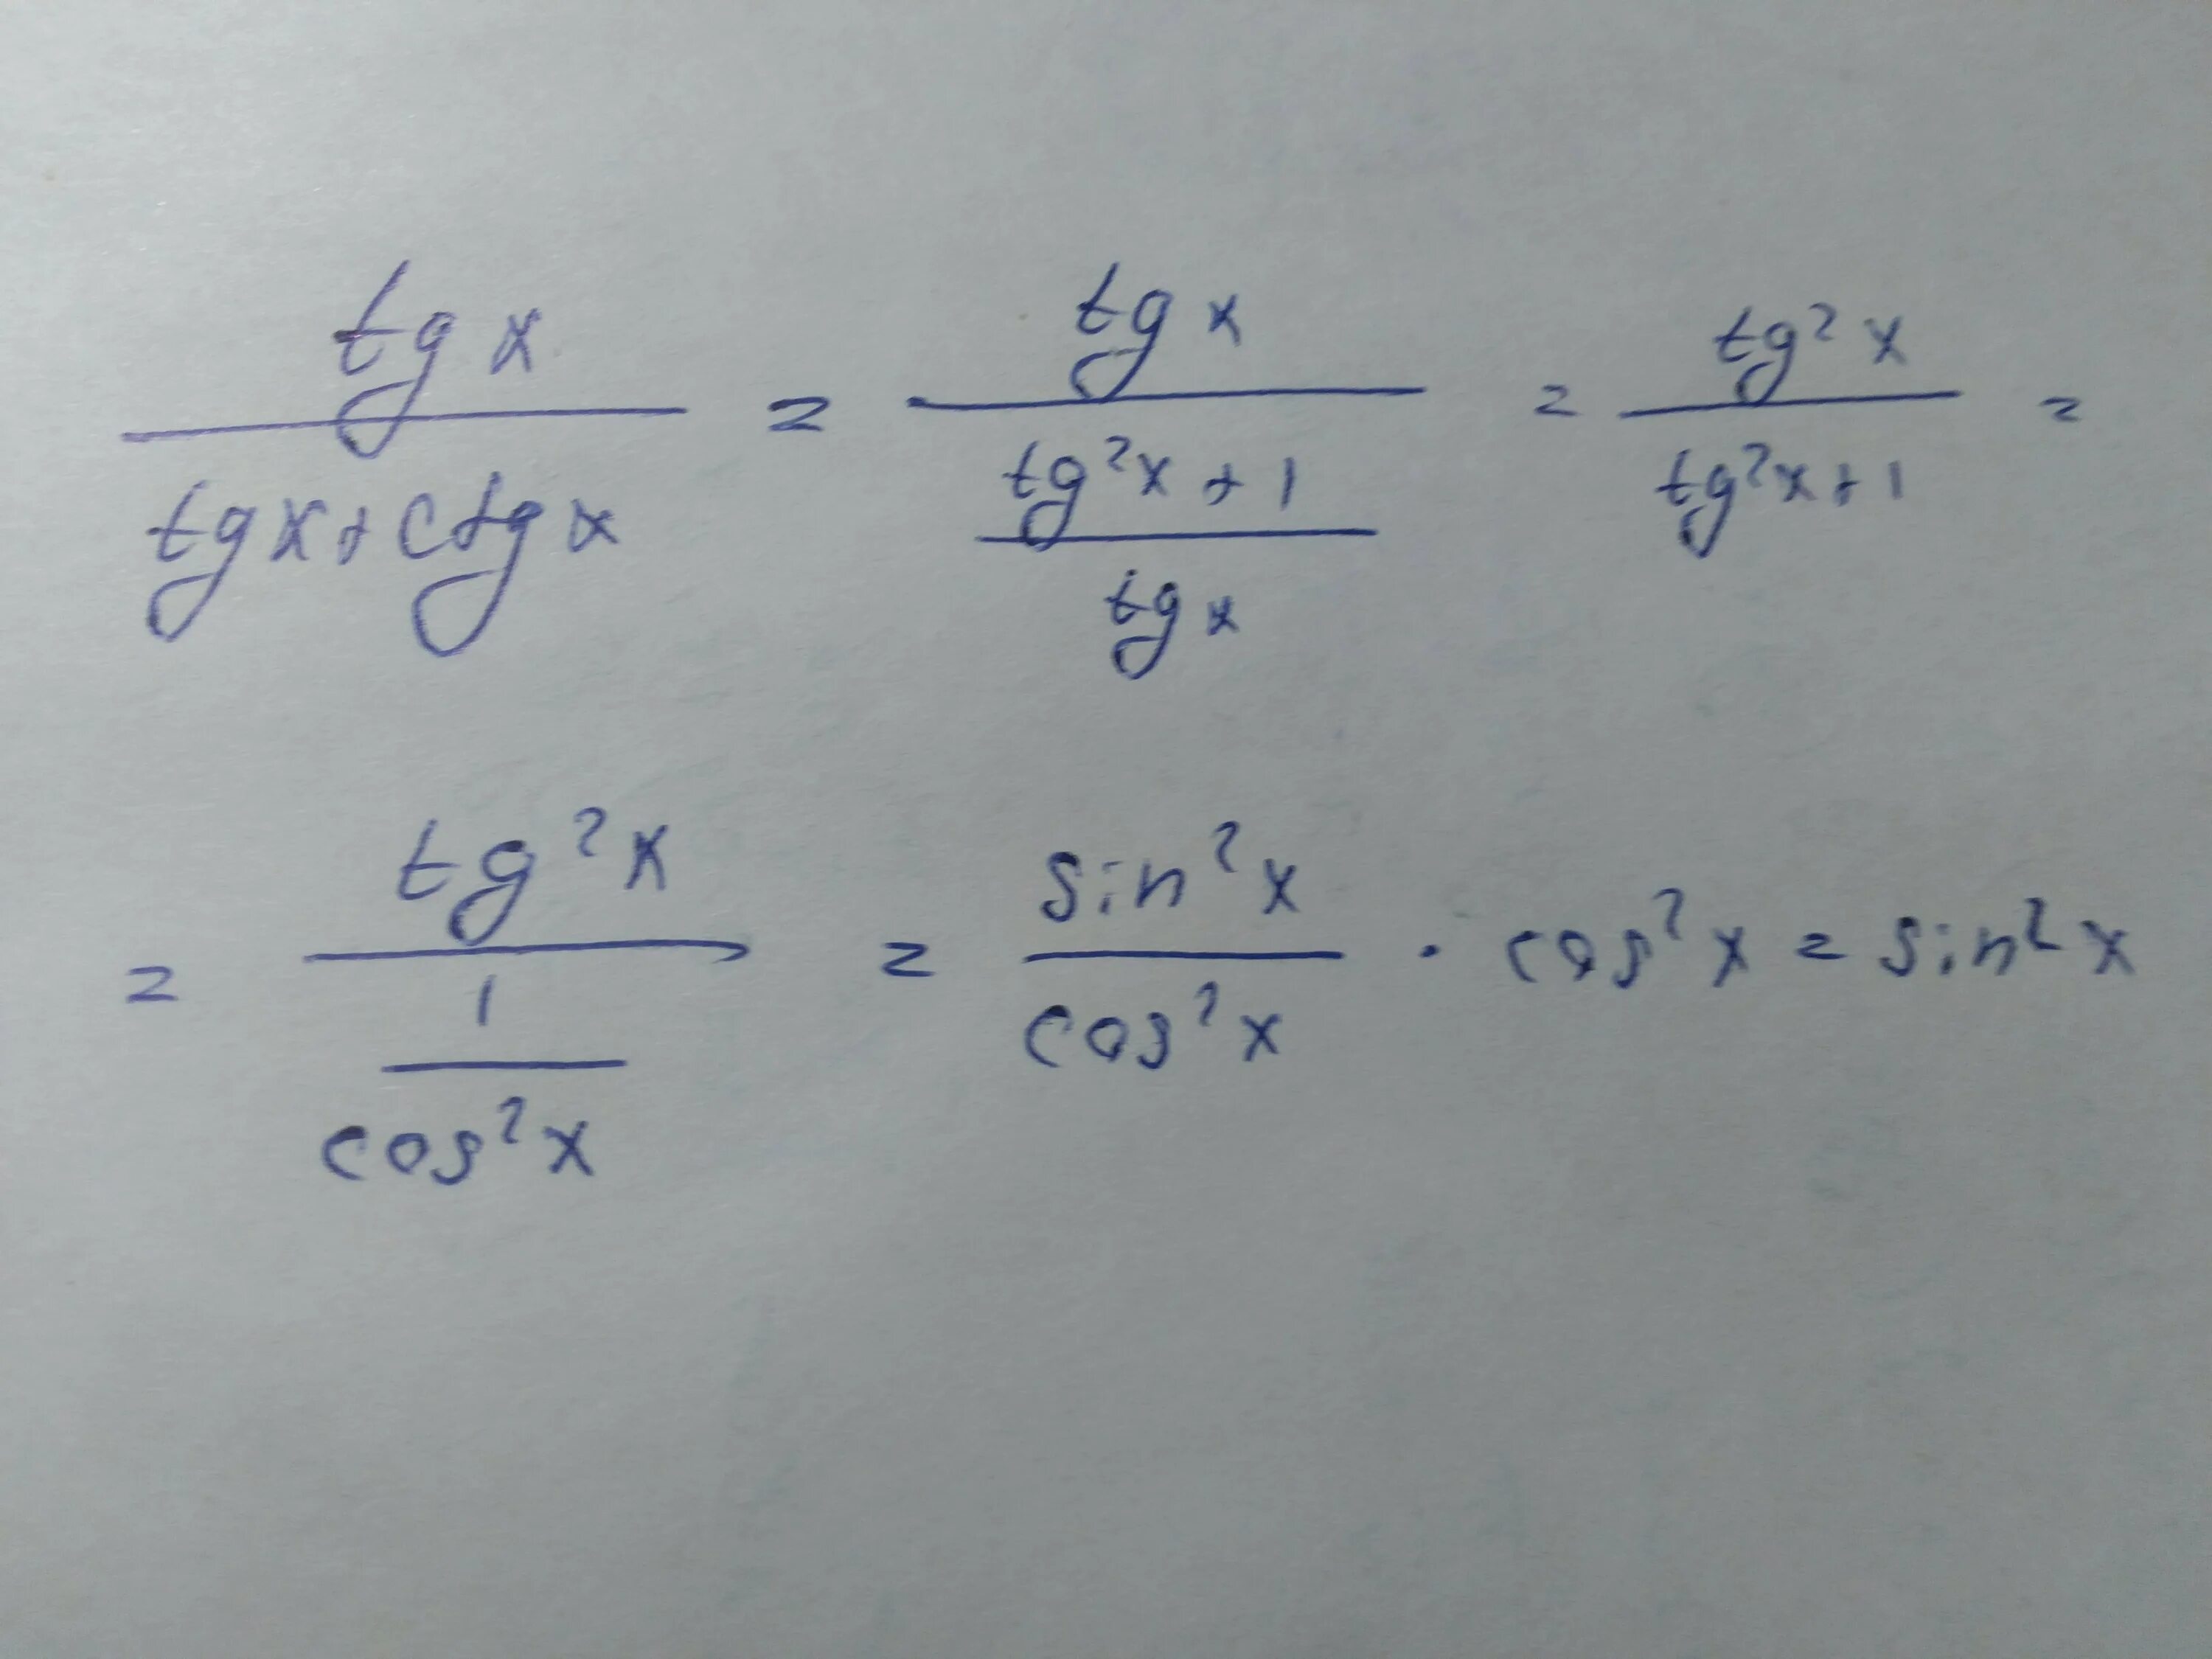 tg x / (tg x + ctg x) = tg x / ((tg²x + 1) / tg x) = tg²x / (tg²x + 1) =
= tg²x / (1 / cos²x) = sin²x / cos²x · cos²x = sin²x